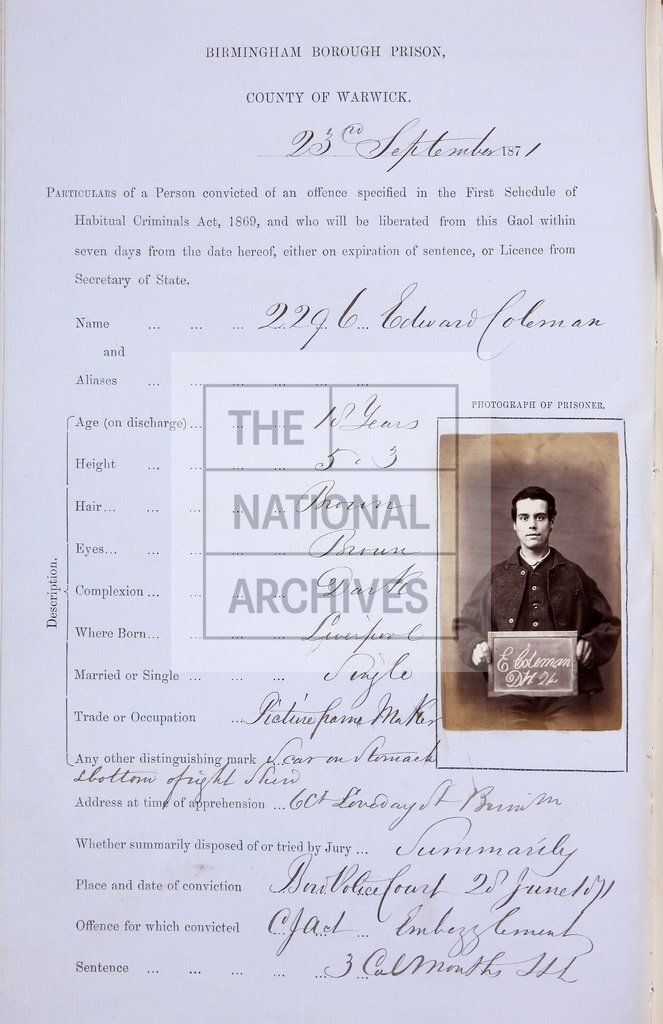 BIRMINGHAM BOROUGH PRISON,
COUNTY OF WARWICK.
23rd September 1871
PARTICULARS of a Person convicted of an offence specified in the First Schedule of
Habitual Criminals Act, 1869, and who will be liberated from this Gaol within
seven days from the date hereof, either on expiration of sentence, or Licence from
Secretary of State.
Name ... ... ... 2296 ... Edward Coleman
and
Aliases ... ... ... ... ... ...
PHOTOGRAPH OF PRISONER.
Description.
Age (on discharge) ... ... ... 18 Years
Height ... ... ... 5 " 3
Hair ... ... ... ... Brown
Eyes ... ... ... ... Brown
Complexion ... ... ... ... Dark
Where Born ... ... ... ... Liverpool
Married or Single ... ... ... Single
Trade or Occupation ... Picture frame Maker
Any other distinguishing mark Scar on Stomach
& bottom of right Shin
Address at time of apprehension ... 6 Ct Loveday St Birm
Whether summarily disposed of or tried by Jury ... Summarily
Place and date of conviction Boro. Police Court 28 June 1871
Offence for which convicted C J Act Embezzlement
Sentence ... ... ... ... 3 Cal Months
E Coleman
THE
NATIONAL
ARCHIVES